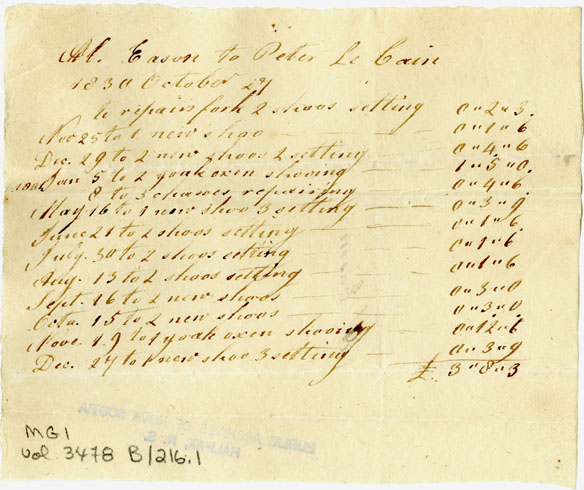 Al. Eason to Peter Le Cain
1830 October 27
to repairs fork 2 shoos setting 0 " 2 " 3.
Nov 25 to 1 new shoo 0 " 1 " 6
Dec. 29 to 2 new shoos 2 setting 0 " 4 " 6
1831 Jan 5 to 2 yoak oxen shooing 1 " 5 " 0.
8 to 3 chases, repairing 0 " 4 " 6
May 16 to 1 new shoo 3 setting 0 " 3 " 9
June 21 to 2 shoos setting 0 " 1 " 6.
July. 30 to 2 shoos setting 0 " 1 " 6
Aug. 13 to 2 shoos setting 0 " 1 " 6
Sept. 16 to 2 new shoos 0 " 3 " 0
Octo. 15 to 2 new shoos 0 " 3 " 0.
Nove. 19 to 1 yoak oxen shooing 0 " 12 " 6
Dec. 27 to 1 new shoo 3 setting 0 " 3 " 9
£ 3 " 8 " 3
PUBLIC ARCHIVES OF NOVA SCOTIA
HALIFAX, N. S.
MG1
vol. 3478 B/216.1